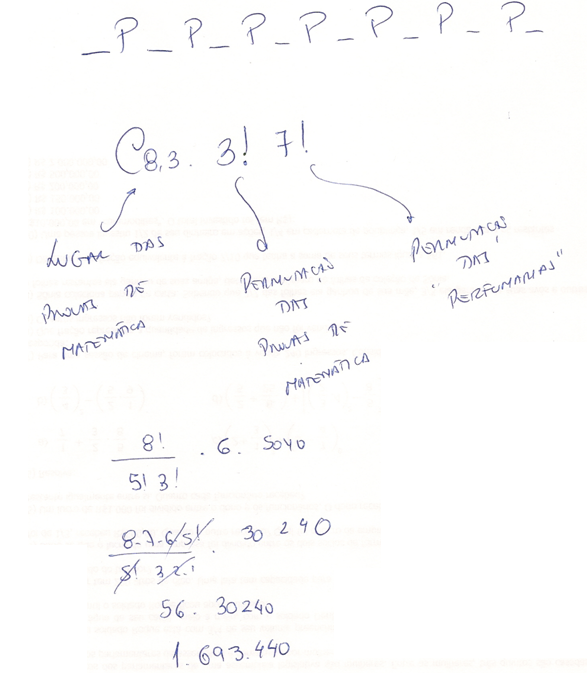 _ P _ P _ P _ P _ P _ P _ P _
C8,3 . 3! 7!
LUGAR DAS
PROVAS DE
MATEMÁTICA
PERMUTAÇÃO
DAS
PROVAS DE
MATEMÁTICA
PERMUTAÇÃO
DAS
"PERFUMARIAS"
8!
5! 3! . 6 . 5040
8.7.6.5!
5! 3.2.1 . 30 240
56 . 30240
1.693.440